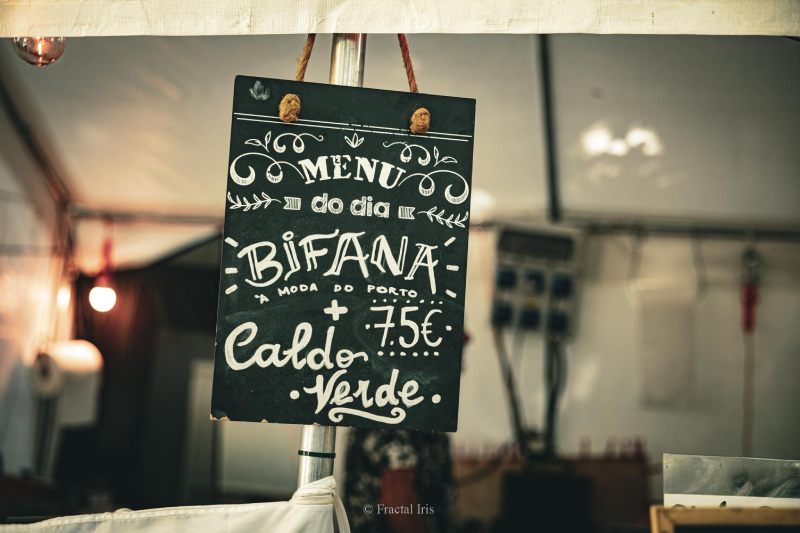 MENU
do dia
BIFANA
À MODA DO PORTO
+
7.5€
Caldo
Verde
© Fractal Iris